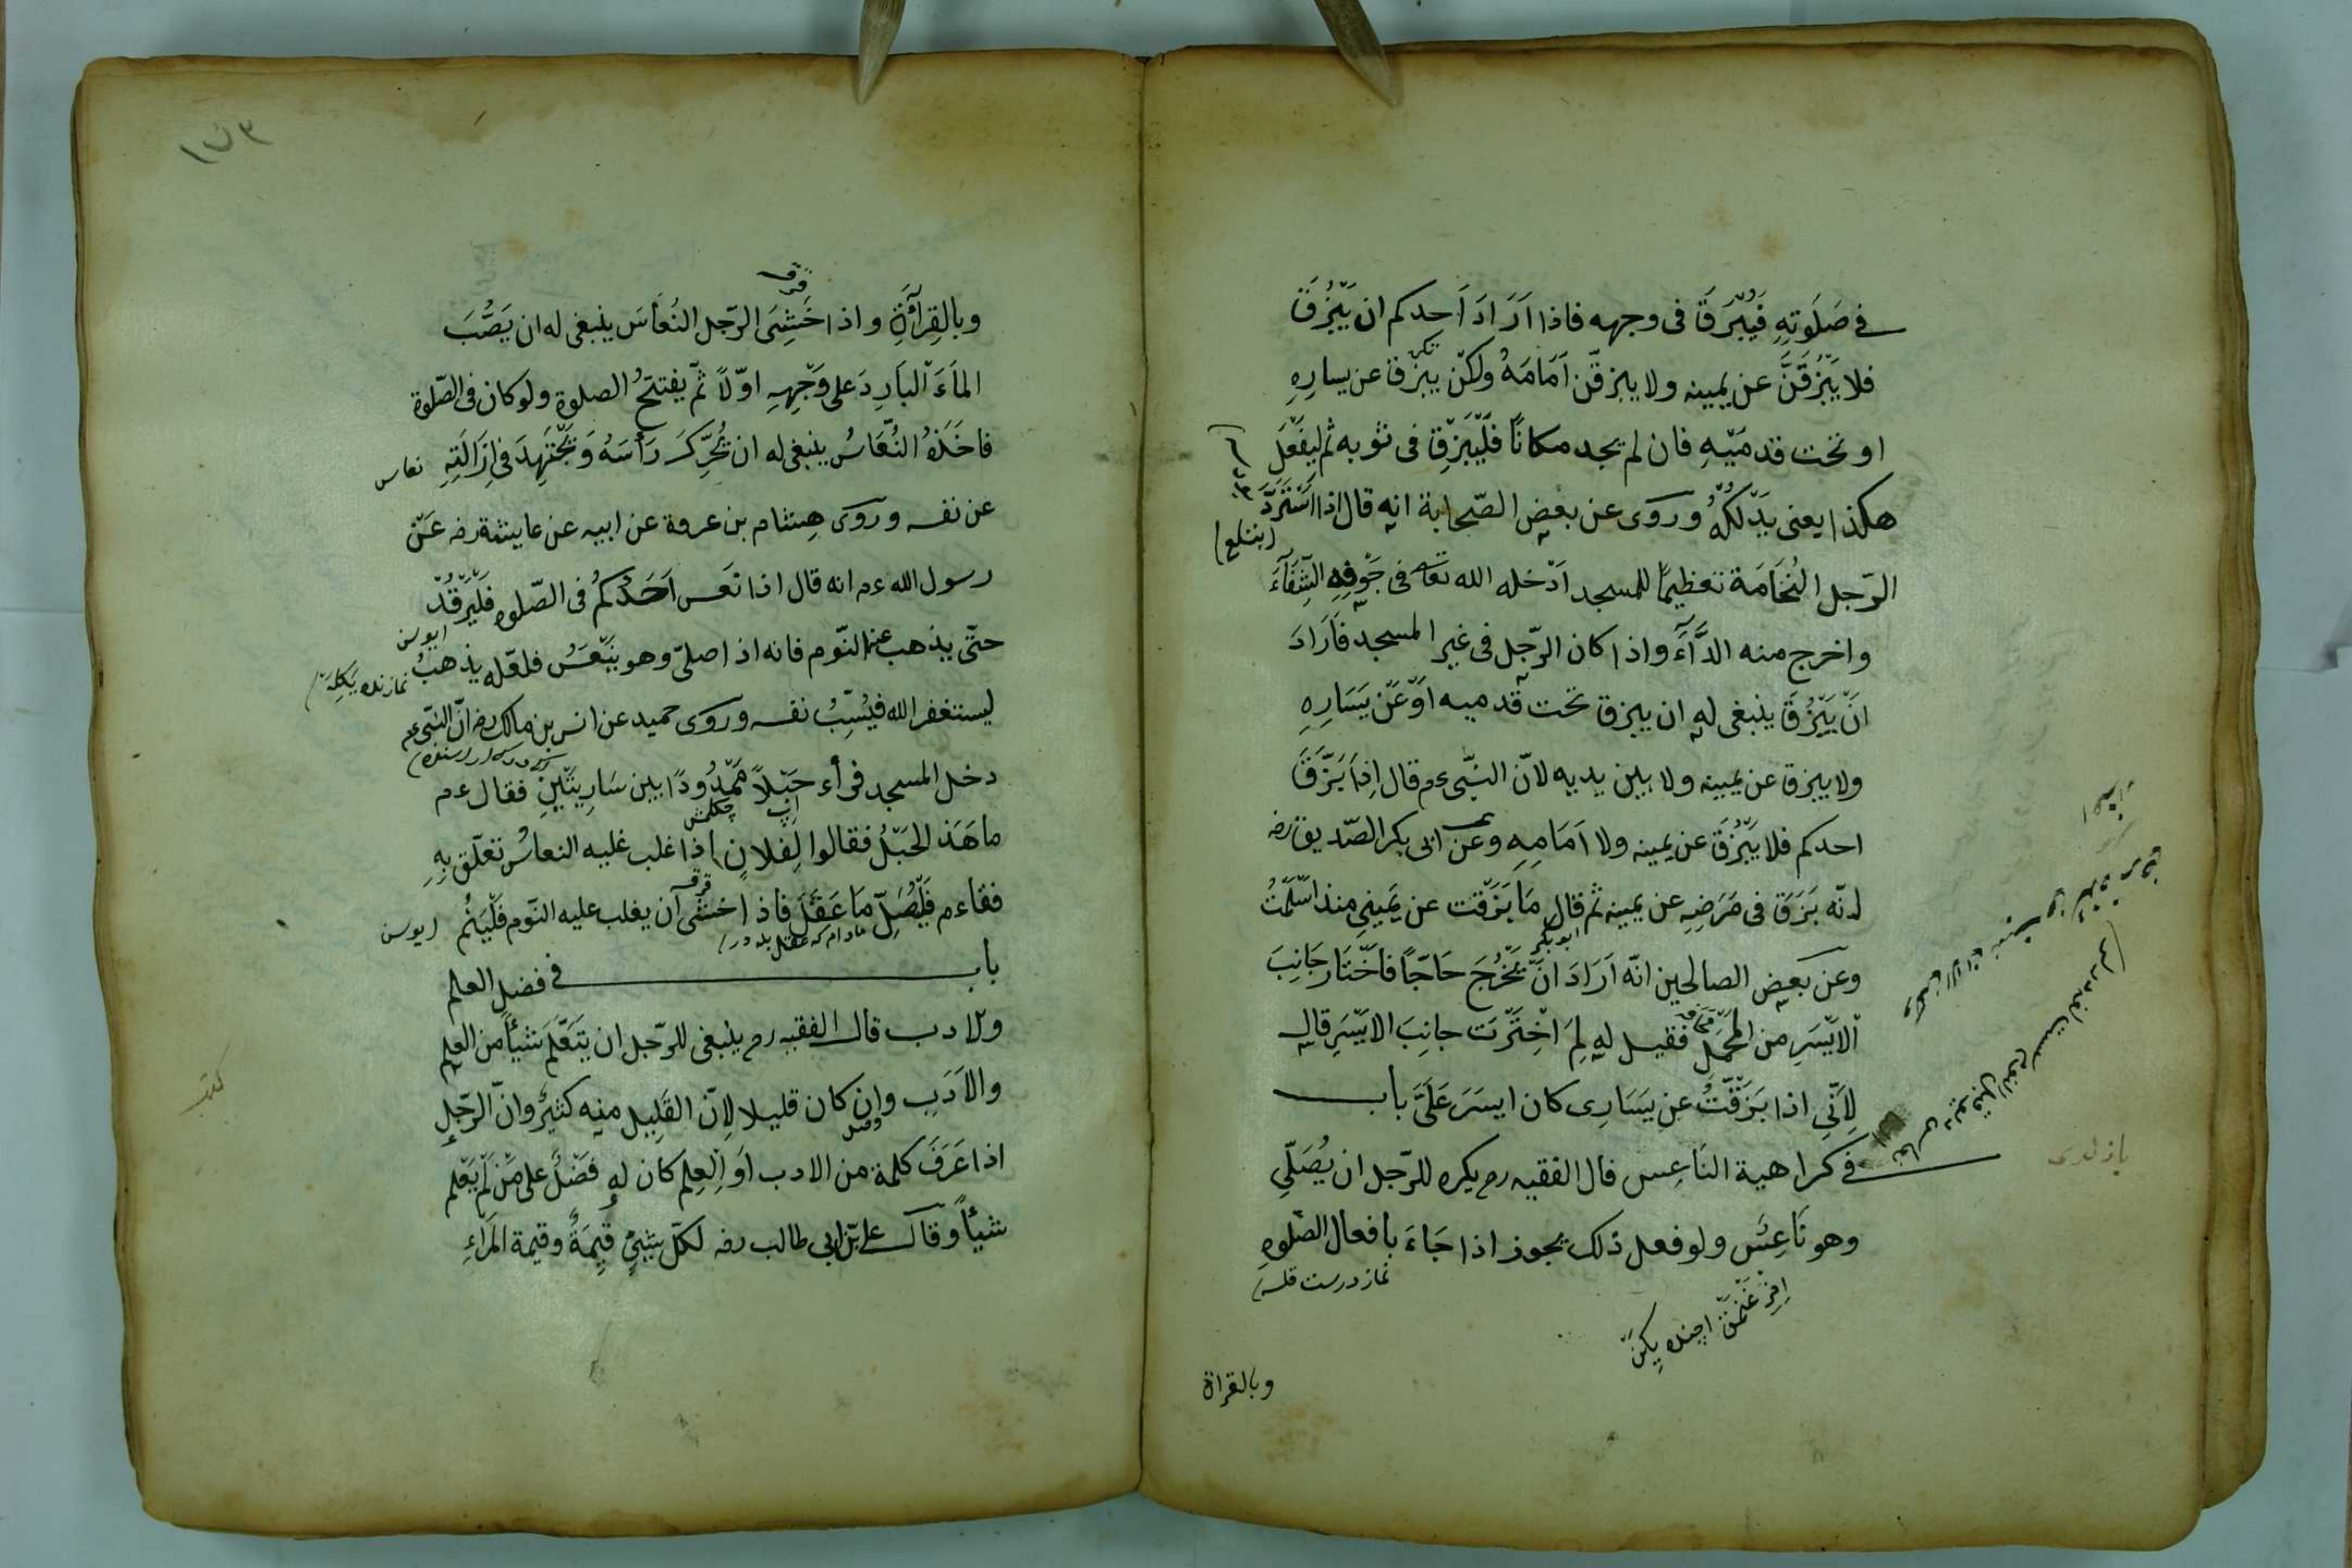 في صَلَوتِهِ فَيُبْزَقَ فى وجهه فاذا اَرَادَ اَحدكم ان يَبْزُقَ
فلا يَبْزُقَنَّ عن يمينه ولا يبزقّن اَمَامَهُ ولكن يَبْزُق عن يسارِهِ
او تحت قدمَيْهِ فان لم يجد مكانًا فَلْيَبْزَقِ فى ثوبه ثم ليَفْعَلْ
هكذا يعنى يَدْلُكُهُ ورَوى عن بعض الصّحابة انه قال اذا اسْتَرَدَّ
(ينتلع)
الرّجل النُخَامَة تعظيمًا للمسجد اَدْخله الله تعا فى جَوْفِهِ الشِّفَآءَ
واخرج منه الدَّآءَ واذا كان الرّجل فى غير المسجد فَاَرَادَ
اَنْ يَبْزُقَ ينبغى له ان يبزق تحت قدميه اَوْ عَنْ يَسَارِهِ
ولا يبزق عن يمينه ولا بين يديه لانّ النبّى ءم قال اِذَا بَزَقَ
احدكم فلا يَبْزُقَ عن يمينه ولا اَمَامِهِ وعن ابى بكر الصّديق رضه
انّه بَزَقَ فى مَرَضِهِ عن يمينه ثم قال مَا بَزَقْت عن يَمِينى منذ اسْلَمْتُ
ابوبكر
وعن بعض الصالحين انّه اَرَادَ انْ يَخْرُجَ حَاجًّا فاَخْتَار جَانِبَ
الاَيْسَرِ من المَحْمَلِ فقيل له لِمَ اَخْتَرْت جانِبَ الاَيْسَرِ قال
لِاَنِّى اذا بَزَقْتُ عن يَسَارِى كان ايسَرَ عَلَىَّ باب
في كراهية النَاعِسِ قال الفقيه رم يكره للرّجل ان يُصَلِّى
وهو نَاعِسٌ ولو فعل ذلك يجوز اذا جَاءَ بافعال الصّلوه
نماز درست قلسه
وبالقراة
١٥٣
وبالقِرآءَةِ واذا خَشِىَ الرّجل النُعَاسَ ينبغى له ان يَصُبَّ
المآءَ البَارِدَ على وَجْهِهِ اوّلاً ثمّ يفتتحُ الصلوة ولو كان فى الصّلوة
فاخَذهُ النُّعَاسُ ينبغى له ان يُحَرِّكَ رَأْسَهُ وَيَجْتَهِدَ فى اِزَالَتِهِ
نعاس
عن نفسه وروى هِشَام بن عروة عن ابيه عن عايشة رضه عَنْ
رسول الله ءم انه قال اذا نَعَس اَحَدُكُم فى الصّلوه فَلْيَرْقُدْ
حتّى يذهب عنه النّوم فانه اذا صلّى وهو يَنْعَسُ فلعّله يذهبُ
ليستغفر الله فَيَسُبّ نفسه وروى حميد عن انس بن مالك رضه انّ النبّى ءم
دخل المسجد فرأء حَبْلاً مَمْدُودًا بين سَارِيَتَيْنِ فقال ءم
ايپ
مَا هَذا الحَبْلُ فقالوا لِفلانٍ اذا غلب عليه النعاسُ تعلّق بِهِ
فقاءم فَلْيُصَلِّ مَا عَقَلَ فاذا خشى ان يغلب عليه النّوم فَلْيَنُم
مادام كه عقل بله در
باب في فضل العلم
والادب قال الفقيه رم ينبغى للرّجل ان يَتَعَلَّمَ شيْأً من العلم
والاَدَبِ وان كان قليلا لِانّ القَلِيل منه كثيرٌ وانّ الرّجل
اذا عَرَفَ كلمة من الادب اَو الْعِلم كان له فضْلٌ على مَنْ لَمْ يَعْلم
شيْأً وقال على بن ابى طالب رضه لكلّ شئٍ قِيمَةٌ وقيمة المَرءِ